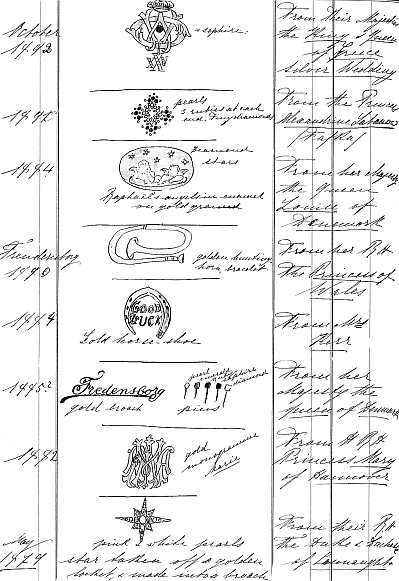 October
1892
saphire.
From their Majesties
the King & Queen
of Greece
Silver Wedding
pearls
3 rubies at each
end. Tiny diamonds
From the Princess
Alexandrine
1884
diamond
stars
Raphael's angels in enamel
on gold ground
From her Majesty
the Queen
Louise of
Denmark
1890
golden hunting
horn bracelet
From her R H
the Princess of
Wales
GOOD
LUCK
Gold horse-shoe
From Mrs
Kerr
1885?
Fredensborg
gold broach
pearl
emerald
saphire
diamond
pins
From her
Majesty the
queen of Denmark
1882
gold
monogramme
From H R H
Princess Mary
of Hannover
May
1879
pink & white pearls
star taken off a golden
locket, & made into a broach
From their R H
the Duke & Duchess
of Connaught